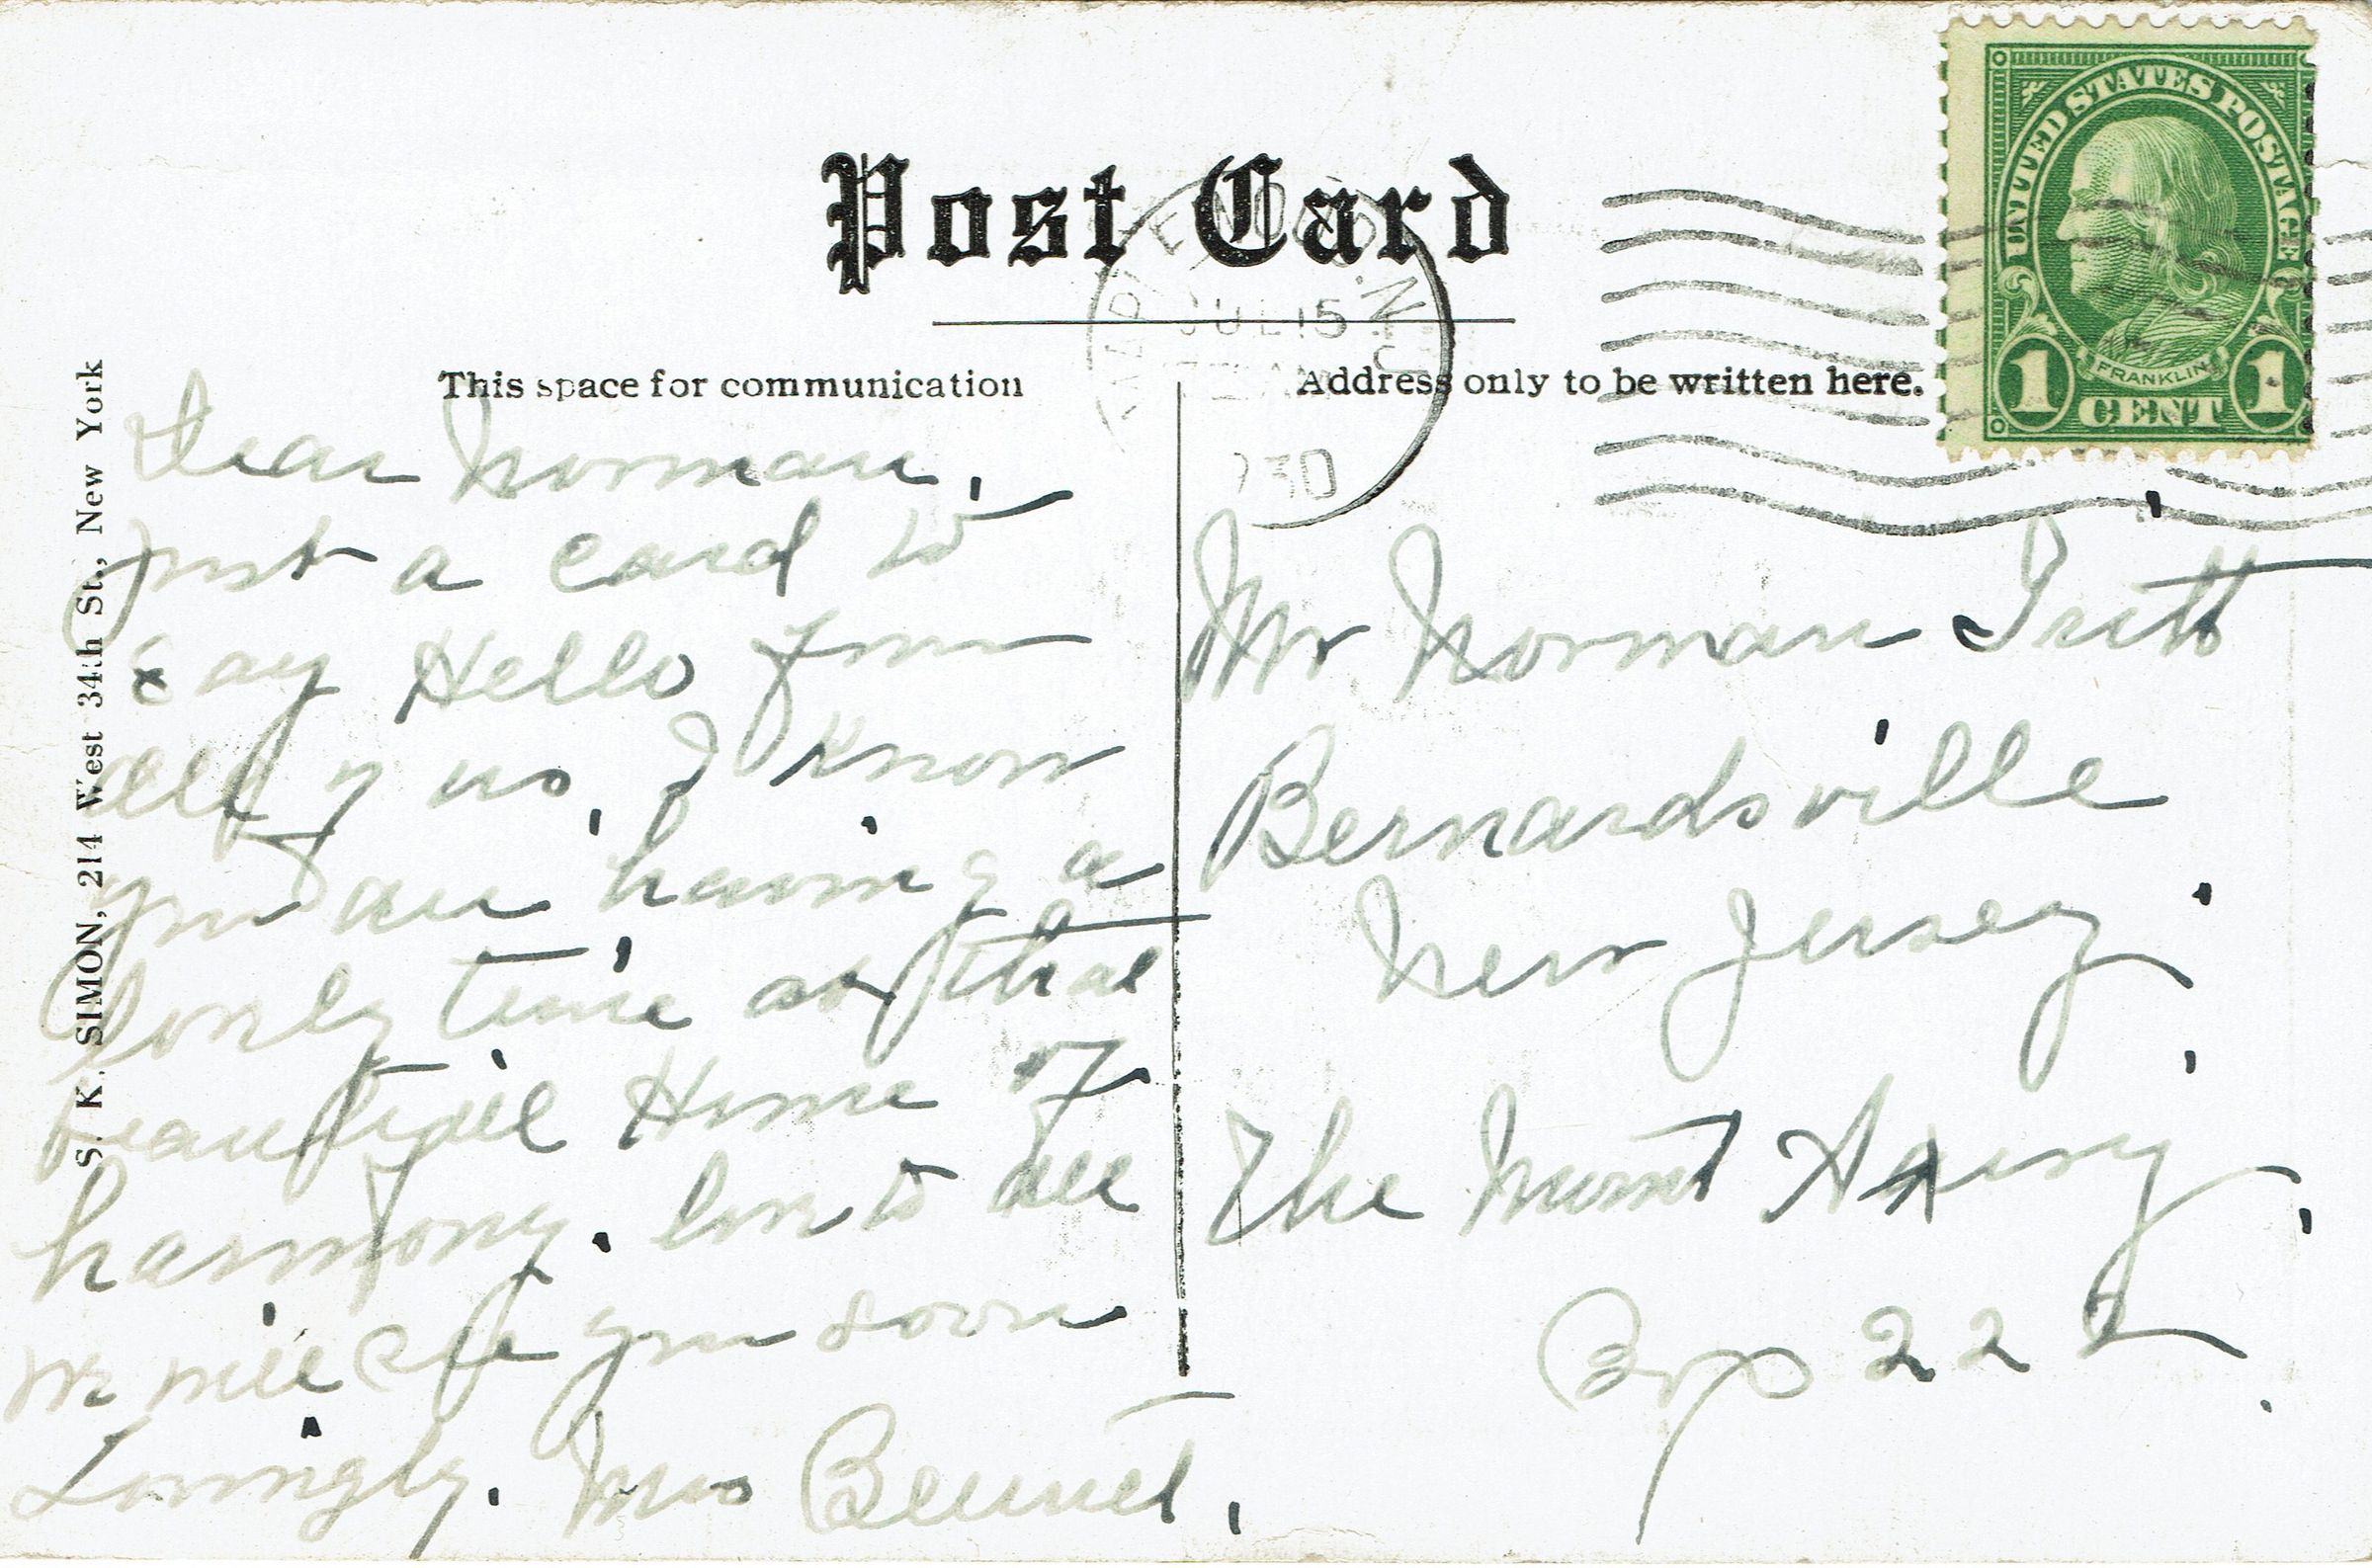 Post Card
This space for communication
Address only to be written here.
UNITED STATES POSTAGE
FRANKLIN
1 CENT 1
JUL 15
30
S. K. SIMON, 214 West 34th St., New York
Dear Norman,
Just a card to
say Hello from
all of us, I know
you are having a
lovely time at that
beautiful Home of
harmony. love to all
we will see you soon
Lovingly. Mrs Bennet.
Mr Norman Tritt
Bernardsville
New Jersey.
The Mount Airy
Box 222